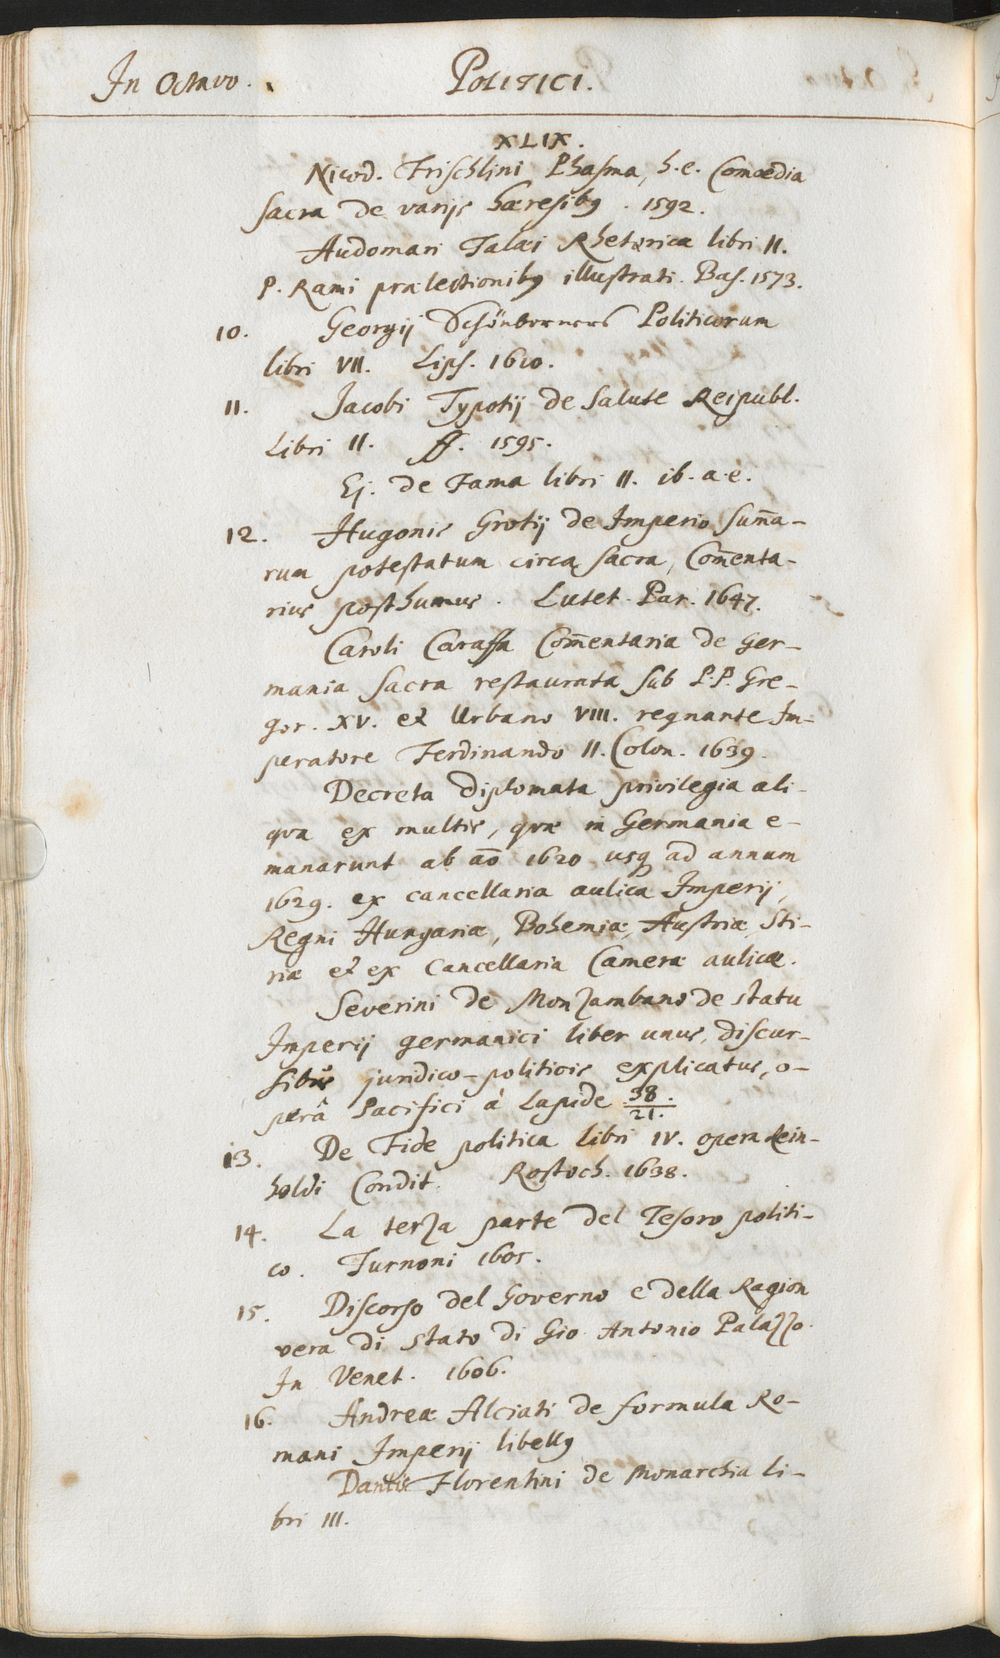 In Octavo. POLITICI.
XLIX.
Nicod. Frischlini Phasma, h. e. Comœdia
sacra de varijs hæresibꝰ. 1592.
Audomari Talæi Rhetorica libri II.
P. Rami prælectionibꝰ illustrati. Bas. 1573.
10. Georgij Schönborners Politicorum
libri VII. Lips. 1610.
11. Jacobi Typotij de salute Reipubl.
Libri II. ff. 1595.
Ej. de Fama libri II. ib. a. e.
12. Hugonis Grotij de Imperio sum̄a-
rum potestatum circa sacra, Com̄enta-
rius posthumus. Lutet. Par. 1647.
Caroli Caraffa Com̄entaria de Ger-
mania sacra restaurata sub P.P. Gre-
gor. XV. et Urbano VIII. regnante Im-
peratore Ferdinando II. Colon. 1639.
Decreta diplomata privilegia ali-
qua ex multis, quæ in Germania e-
manarunt ab aō 1620 usq ad annum
1629. ex cancellaria aulica Imperij,
Regni Hungariæ, Bohemiæ, Austriæ, Sti-
riæ et ex Cancellaria Cameræ aulicæ.
Severini de Monzambano de statu
Imperij germanici liber unus, discur-
sibus juridico-politicis explicatus, o-
perâ Pacifici à Lapide 38./21.
13. De Fide politica libri IV. opera Rein-
holdi Condit. Rostoch. 1638.
14. La terza parte del Tesoro politi-
co. Turnoni 1605.
15. Discorso del Governo e della Ragion
vera di stato di Gio. Antonio Palazzo.
In Venet. 1606.
16. Andreæ Alciati de formula Ro-
mani Imperij libellꝰ
Dantis Florentini de Monarchia li-
bri III.